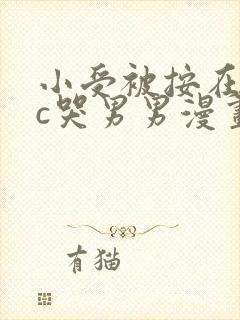 小受被按在
c哭男男漫畫
有猫